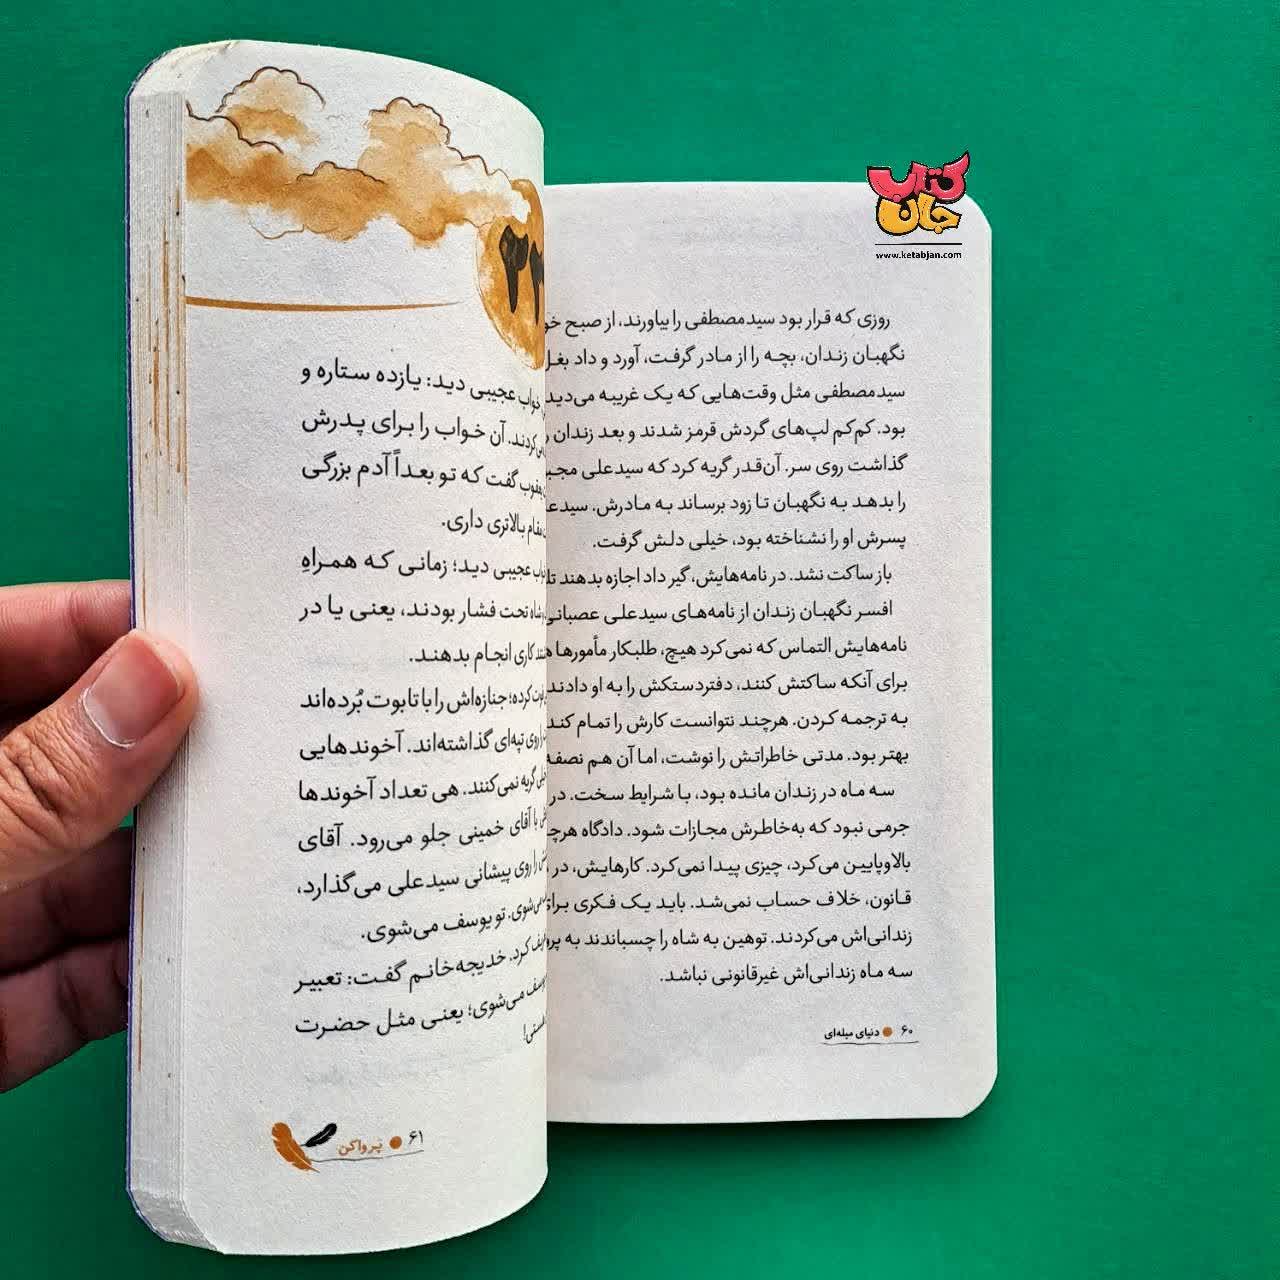 کتاب
جان
www.ketabjan.com
روزی که قرار بود سیدمصطفی را بیاورند، از صبح
نگهبان زندان، بچه را از مادر گرفت، آورد و داد بغل
سیدمصطفی مثل وقت‌هایی که یک غریبه می‌دید
بود. کم‌کم لپ‌های گردش قرمز شدند و بعد زندان
گذاشت روی سر. آن‌قدر گریه کرد که سیدعلی
را بدهد به نگهبان تا زود برساند به مادرش.
پسرش او را نشناخته بود، خیلی دلش گرفت.
باز ساکت نشد. در نامه‌هایش، گیر داد اجازه بدهند
افسر نگهبان زندان از نامه‌های سیدعلی عصبانی
نامه‌هایش التماس که نمی‌کرد هیچ، طلبکار مأمورها
برای آنکه ساکتش کنند، دفتردستکش را به او دادند
به ترجمه کردن. هرچند نتوانست کارش را تمام کند
بهتر بود. مدتی خاطراتش را نوشت، اما آن هم نصفه
سه ماه در زندان مانده بود، با شرایط سخت. در
جرمی نبود که به‌خاطرش مجازات شود. دادگاه
بالاوپایین می‌کرد، چیزی پیدا نمی‌کرد. کارهایش، در
قانون، خلاف حساب نمی‌شد. باید یک فکری
زندانی‌اش می‌کردند. توهین به شاه را چسباندند به
سه ماه زندانی‌اش غیرقانونی نباشد.
۶۰ دنیای میله‌ای
خواب عجیبی دید: یازده ستاره و
می‌کردند. آن خواب را برای پدرش
یعقوب گفت که تو بعداً آدم بزرگی
مقام بالاتری داری.
عجیبی دید؛ زمانی که همراهِ
شاه تحت فشار بودند، یعنی یا در
کاری انجام بدهند.
فوت کرده؛ جنازه‌اش را با تابوت بُرده‌اند
روی تپه‌ای گذاشته‌اند. آخوندهایی
گریه نمی‌کنند. هی تعداد آخوندها
با آقای خمینی جلو می‌رود. آقای
را روی پیشانی سیدعلی می‌گذارد،
می‌شوی. تو یوسف می‌شوی.
کرد. خدیجه‌خانم گفت: تعبیر
یوسف می‌شوی؛ یعنی مثل حضرت
۶۱ پَر واکن